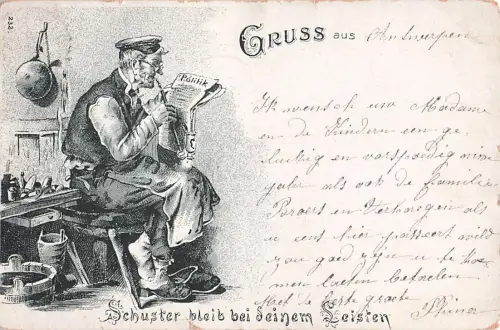 232.
GRUSS aus Antwerpen
Politik
Ik wensch uw Madame
en de Kindern een ge-
lukkig en voorspoedig nieuw
jahr als ook de familie
en als
u eens hier passeert wild
zou goed zyn u te
men laten betaelen
Met de beste groete
Schuster bleib bei deinem Leisten